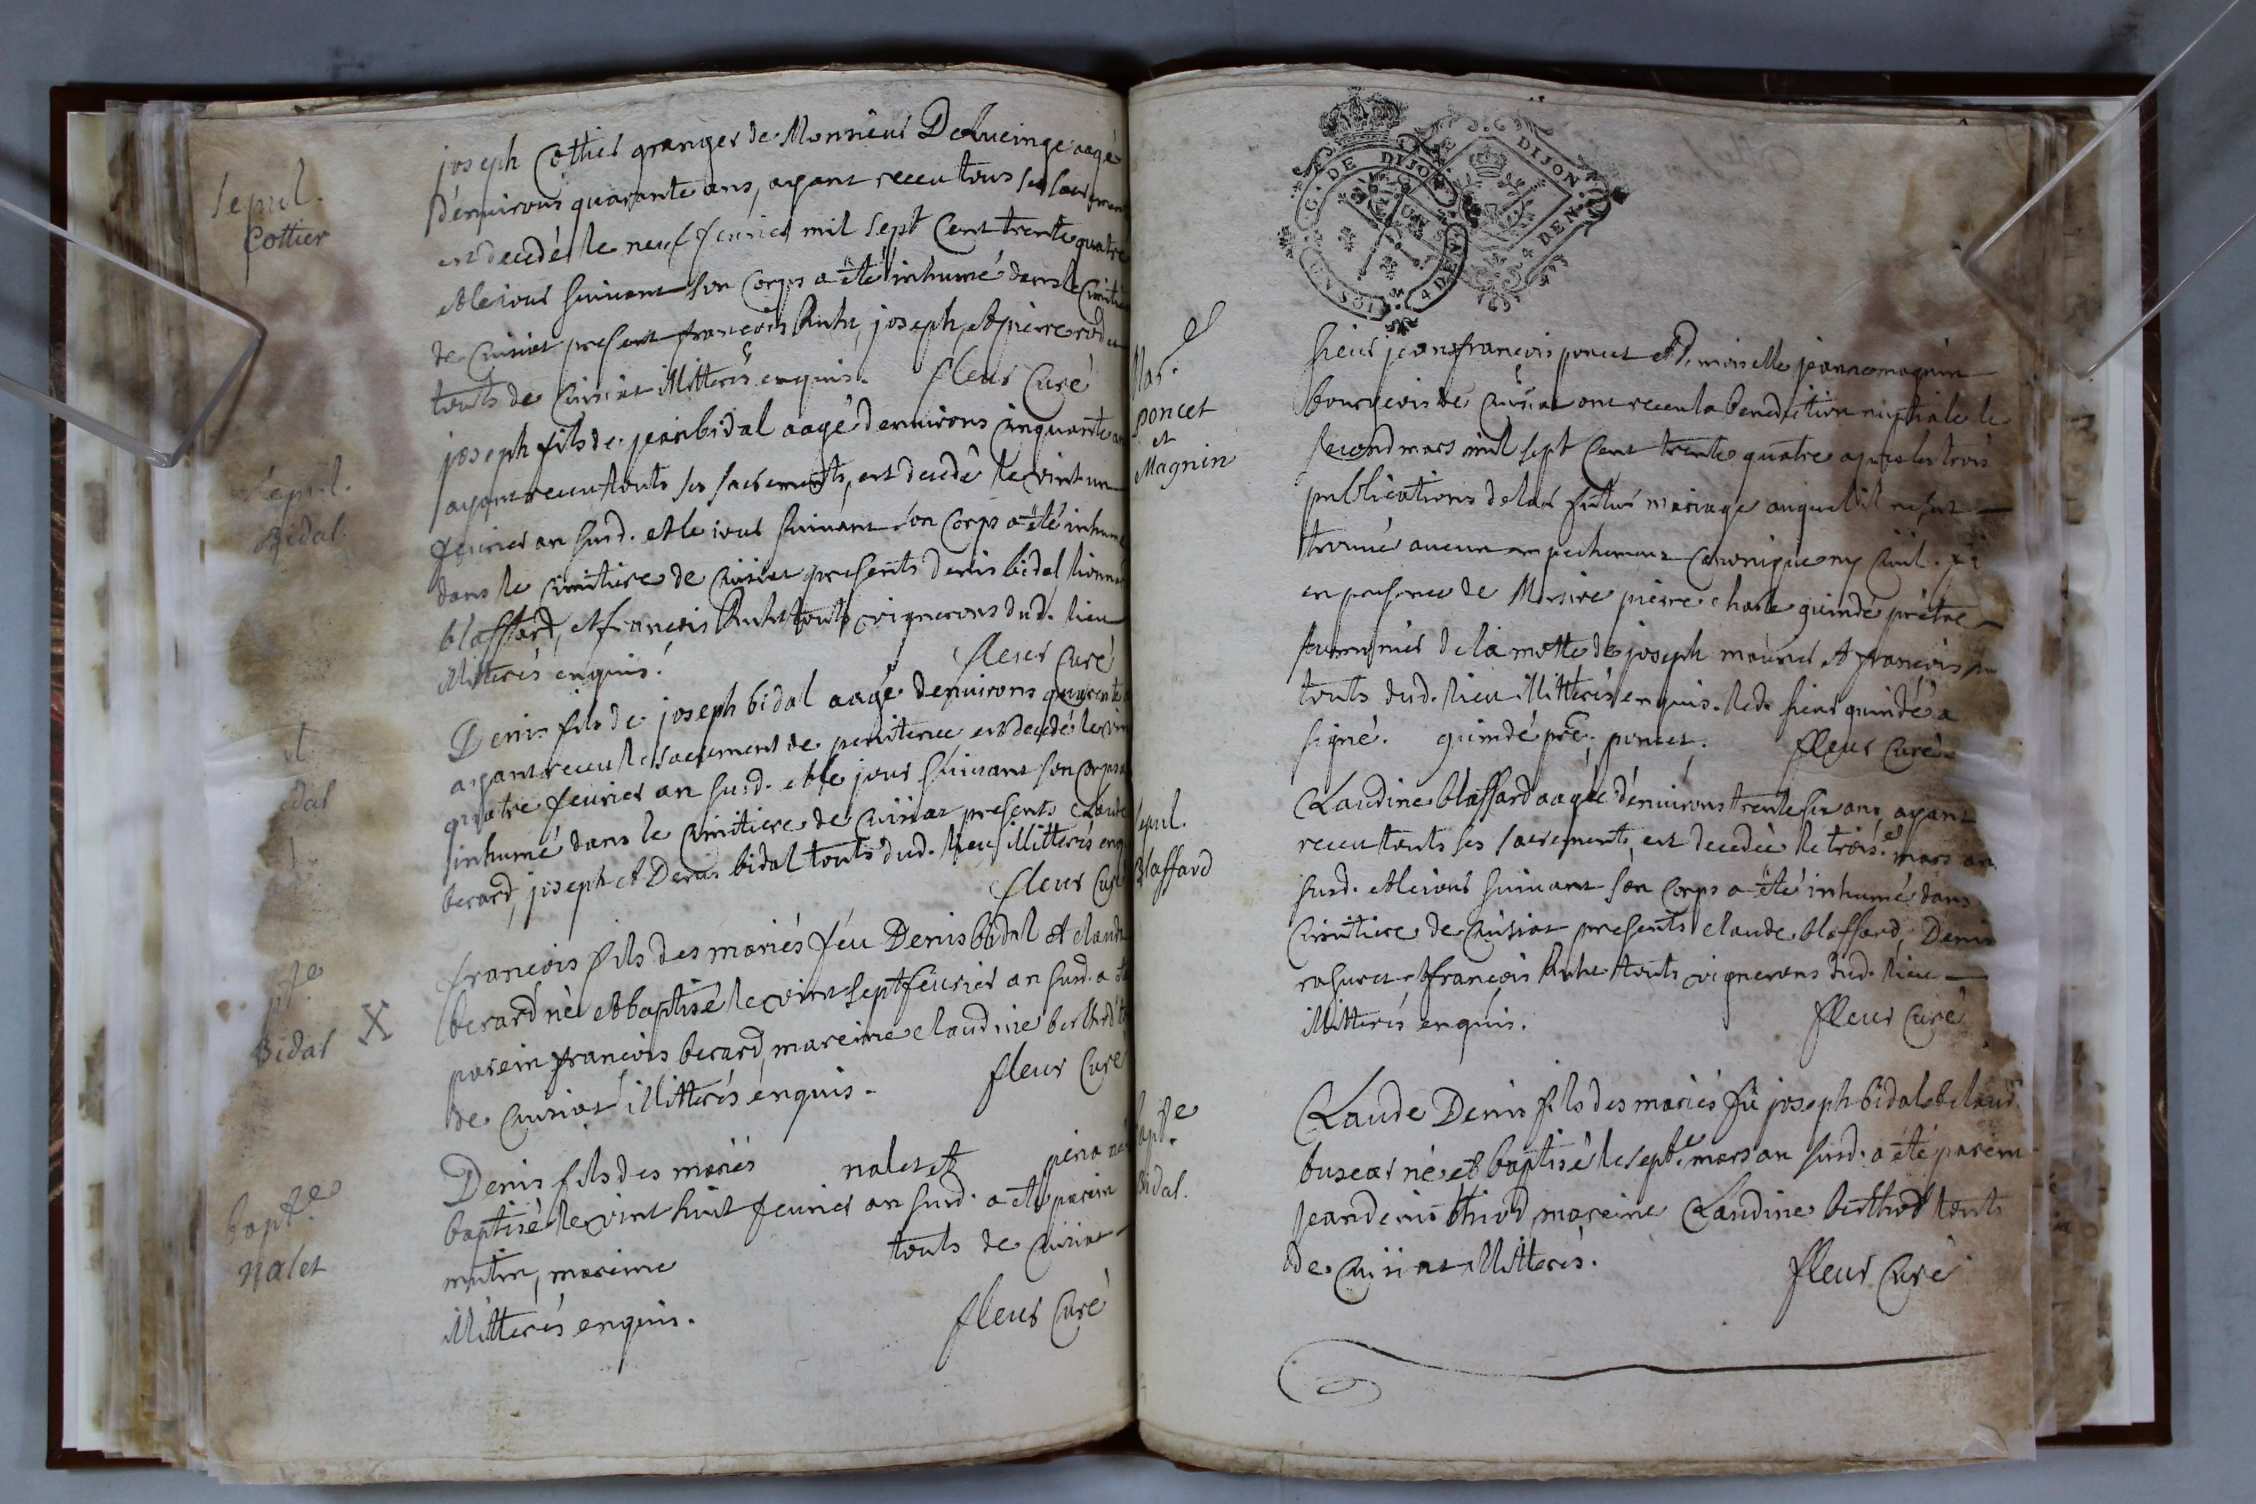 sepul.
Cottier
joseph Cottier granger de Monsieur Delucinge aagé
d'environs quarante ans, ayant receu tous ses sacremen
est decedé le neuf feurier mil sept Cent trente quatre
et le iour suiuant son Corps a été inhumé dans le Cimitie
de Cuisiat present françois joseph et pierre
touts de Cuisiat illitterés enquis. fleur Curé
sepul.
Bidal.
joseph fils de jean bidal aagé d'enuirons cinquante an
ayant receu touts ses sacrements, est decedé le vint un
feurier an susd. et le iour suiuant son Corps a été inhumé
dans le cimitiere de Cuisiat presents denis bidal
blaffard, et françois touts vignerons dud. lieu
illitterés enquis. fleur Curé
Denis fils de joseph bidal aagé d'enuirons quarente
ayant receu le sacrement de penitence est decedé le vin
quatre feurier an susd. et le jour suiuant son Corps a
inhumé dans le Cimitiere de Cuisiat presents Claude
berard, joseph et Denis bidal touts dud. lieu illitterés enq
fleur Curé
pte
Bidal
X
françois fils des mariés feu Denis bidal et claud
berard né et baptisé le vint sept feurier an susd. a été
parein françois berard, mareine claudine
de Cuisiat illitterés enquis. fleur Curé
bapte
nalet
Denis fils des mariés nalet et né
baptisé le vint huit feurier an susd. a eté parein
mutin, mareine touts de Cuisiat
illitterés enquis. fleur Curé
G. DE DIJON
UN SOL
4 DEN.
DIJON
4 DEN.
Mar.
poncet
et
Magnin
sieur jean françois poncet et Demoiselle jeanne magnin
bourgeois de Cuisiat ont receu la benediction nuptiale le
second mars mil sept Cent trente quatre apres les trois
publications de leur futur mariage auquel il ne s'est
trouué aucun empechement Canonique ny Ciuil.
en presence de Messire pierre charle guindé prêtre
de la motte de joseph et françois
touts dud. lieu illitterés enquis. led. sieur guindé a
signé. guindé pre. poncet. fleur Curé.
sepul.
Blaffard
Claudine blaffard aagée d'enuirons trente six ans, ayant
receu touts ses sacrements, est decedée le trois.e mars an
susd. et le iour suiuant son Corps a été inhumé dans
Cimitiere de Cuisiat presents claude blaffard, Denis
et françois touts vignerons dud. lieu
illitterés enquis. fleur Curé
bapte.
Bidal.
Claude Denis fils des mariés fû joseph bidal et claud.
buscar né et baptisé le sept.e mars an susd. a été parein
jean denis mareine Claudine berthod touts
de Cuisiat illitterés. fleur Curé